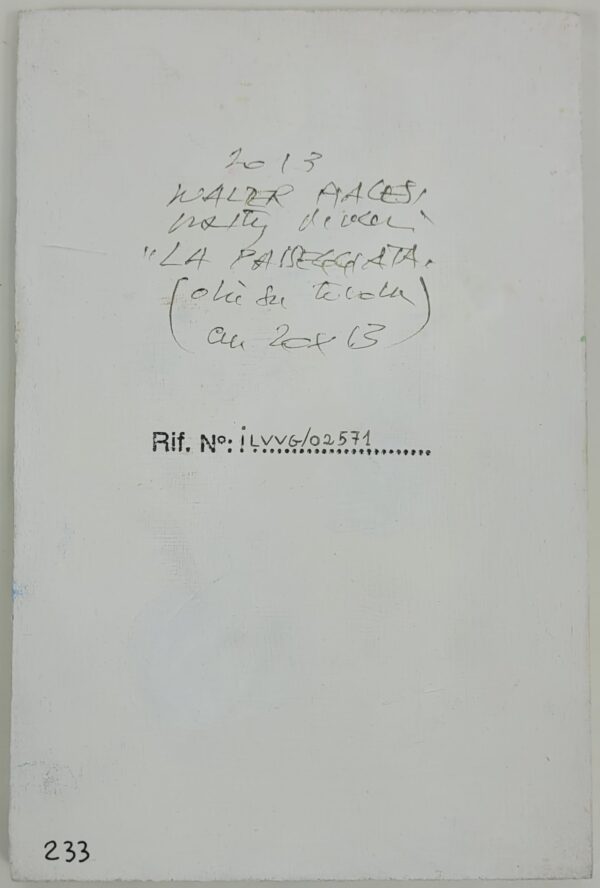 2013
WALTER
"LA PASSEGGIATA.
(olio su tavola)
cm 20x13
Rif. Nº: iLVVG/02571
233